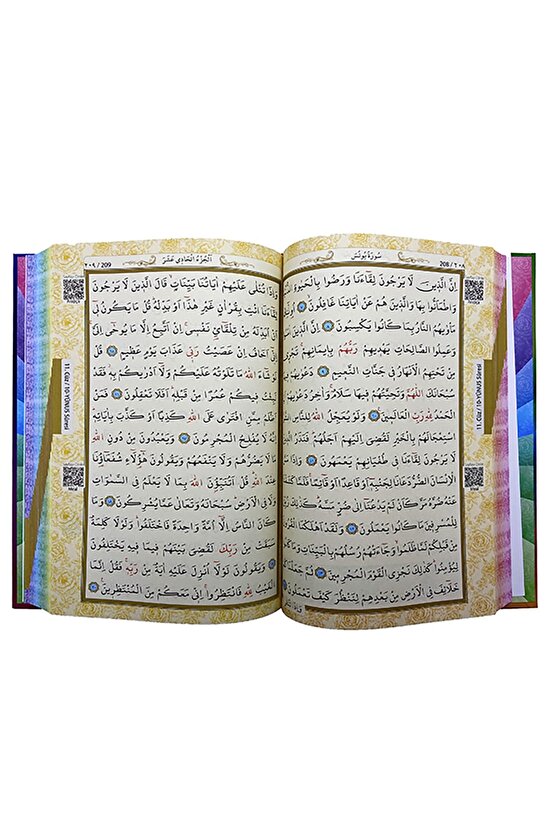 سورة يونس
208 / ٢٠٨
اِنَّ الَّذ۪ينَ لَا يَرْجُونَ لِقَٓاءَنَا وَرَضُوا بِالْحَيٰوةِ
وَاطْمَاَنُّوا بِهَا وَالَّذ۪ينَ هُمْ عَنْ اٰيَاتِنَا غَافِلُونَ ﴿٧﴾
مَأْوٰيهُمُ النَّارُ بِمَا كَانُوا يَكْسِبُونَ ﴿٨﴾ اِنَّ الَّذ۪ينَ
وَعَمِلُوا الصَّالِحَاتِ يَهْد۪يهِمْ رَبُّهُمْ بِا۪يمَانِهِمْ تَجْر۪ي
مِنْ تَحْتِهِمُ الْاَنْهَارُ ف۪ي جَنَّاتِ النَّع۪يمِ ﴿٩﴾
سُبْحَانَكَ اللّٰهُمَّ وَتَحِيَّتُهُمْ ف۪يهَا سَلَامٌ وَاٰخِرُ
الْحَمْدُ لِلّٰهِ رَبِّ الْعَالَم۪ينَ ﴿١٠﴾ وَلَوْ يُعَجِّلُ اللّٰهُ لِلنَّاسِ
اسْتِعْجَالَهُمْ بِالْخَيْرِ لَقُضِيَ اِلَيْهِمْ اَجَلُهُمْ فَنَذَرُ الَّذ۪ينَ
لَا يَرْجُونَ لِقَٓاءَنَا ف۪ي طُغْيَانِهِمْ يَعْمَهُونَ ﴿١١﴾
الْاِنْسَانَ الضُّرُّ دَعَانَا لِجَنْبِه۪ٓ اَوْ قَاعِدًا اَوْ قَٓائِمًا
عَنْهُ ضُرَّهُ مَرَّ كَاَنْ لَمْ يَدْعُنَٓا اِلٰى ضُرٍّ مَسَّهُ كَذٰلِكَ
لِلْمُسْرِف۪ينَ مَا كَانُوا يَعْمَلُونَ ﴿١٢﴾ وَلَقَدْ اَهْلَكْنَا
مِنْ قَبْلِكُمْ لَمَّا ظَلَمُوا وَجَٓاءَتْهُمْ رُسُلُهُمْ بِالْبَيِّنَاتِ وَمَا
لِيُؤْمِنُوا كَذٰلِكَ نَجْزِي الْقَوْمَ الْمُجْرِم۪ينَ ﴿١٣﴾ ثُمَّ
خَلَٓائِفَ فِي الْاَرْضِ مِنْ بَعْدِهِمْ لِنَنْظُرَ كَيْفَ تَعْمَلُونَ
11. Cüz / 10-YÛNUS Sûresi
اَلْجُزْءُ الْحَادِي عَشَرَ
٢٠٩ / 209
وَاِذَا تُتْلٰى عَلَيْهِمْ اٰيَاتُنَا بَيِّنَاتٍ قَالَ الَّذ۪ينَ لَا يَرْجُونَ
لِقَٓاءَنَا ائْتِ بِقُرْاٰنٍ غَيْرِ هٰذَٓا اَوْ بَدِّلْهُ قُلْ مَا يَكُونُ ل۪ٓي
اَنْ اُبَدِّلَهُ مِنْ تِلْقَٓائِ۬ نَفْس۪ي اِنْ اَتَّبِعُ اِلَّا مَا يُوحٰٓى اِلَيَّ
اِنّ۪ٓي اَخَافُ اِنْ عَصَيْتُ رَبّ۪ي عَذَابَ يَوْمٍ عَظ۪يمٍ ﴿١٥﴾ قُلْ
لَوْ شَٓاءَ اللّٰهُ مَا تَلَوْتُهُ عَلَيْكُمْ وَلَٓا اَدْرٰيكُمْ بِه۪
فَقَدْ لَبِثْتُ ف۪يكُمْ عُمُرًا مِنْ قَبْلِه۪ اَفَلَا تَعْقِلُونَ ﴿١٦﴾ فَمَنْ
اَظْلَمُ مِمَّنِ افْتَرٰى عَلَى اللّٰهِ كَذِبًا اَوْ كَذَّبَ بِاٰيَاتِه۪
اِنَّهُ لَا يُفْلِحُ الْمُجْرِمُونَ ﴿١٧﴾ وَيَعْبُدُونَ مِنْ دُونِ اللّٰهِ
مَا لَا يَضُرُّهُمْ وَلَا يَنْفَعُهُمْ وَيَقُولُونَ هٰٓؤُ۬لَٓاءِ شُفَعَٓاؤُ۬نَا
عِنْدَ اللّٰهِ قُلْ اَتُنَبِّؤُ۫نَ اللّٰهَ بِمَا لَا يَعْلَمُ فِي السَّمٰوَاتِ
وَلَا فِي الْاَرْضِ سُبْحَانَهُ وَتَعَالٰى عَمَّا يُشْرِكُونَ ﴿١٨﴾ وَمَا
كَانَ النَّاسُ اِلَّٓا اُمَّةً وَاحِدَةً فَاخْتَلَفُوا وَلَوْلَا كَلِمَةٌ
سَبَقَتْ مِنْ رَبِّكَ لَقُضِيَ بَيْنَهُمْ ف۪يمَا ف۪يهِ يَخْتَلِفُونَ
﴿١٩﴾ وَيَقُولُونَ لَوْلَٓا اُنْزِلَ عَلَيْهِ اٰيَةٌ مِنْ رَبِّه۪ فَقُلْ اِنَّمَا
الْغَيْبُ لِلّٰهِ فَانْتَظِرُوا اِنّ۪ي مَعَكُمْ مِنَ الْمُنْتَظِر۪ينَ ﴿٢٠﴾
11. Cüz / 10-YÛNUS Sûresi
Meal